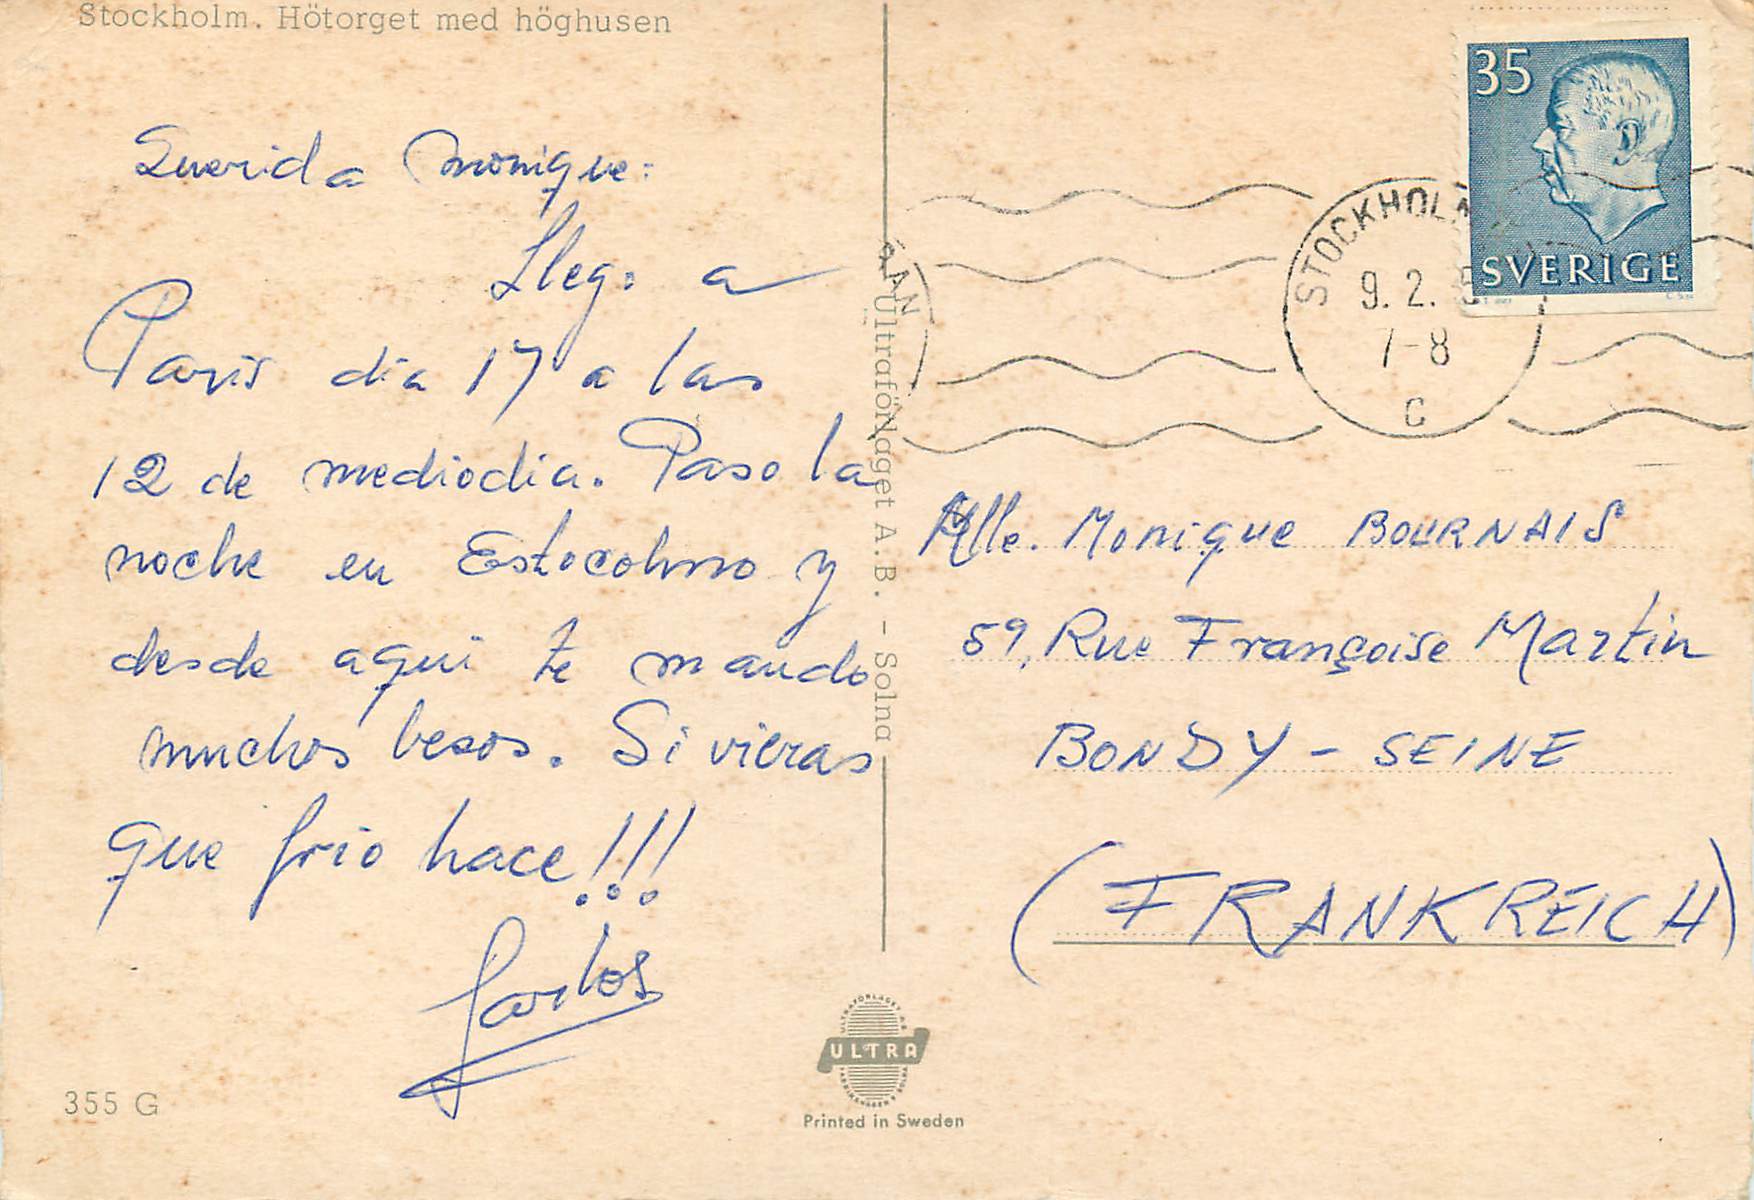 Stockholm. Hötorget med höghusen
Querida Monique:
Llego a
Paris dia 17 a las
12 de mediodia. Paso la
noche en Estocolmo y
desde aqui te mando
muchos besos. Si vieras
que frio hace!!!
Carlos
355 G
Ultraförlaget A.B. - Solna
ULTRA
Printed in Sweden
35
SVERIGE
STOCKHOLM
9. 2.
7-8
C
Mlle. Monique BOURNAIS
59, Rue Françoise Martin
BONDY - SEINE
(FRANKREICH)